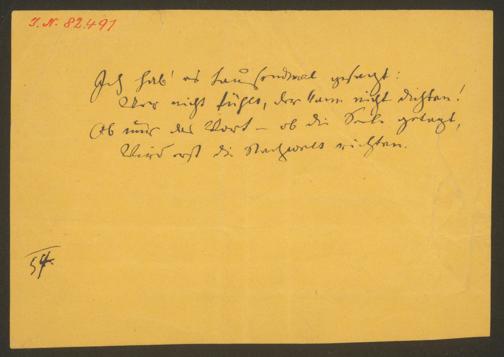 I. N. 82.491
Ich hab' es tausendmal gesagt:
Wer nicht fühlt, der kann nicht dichten!
Ob nur das Wort – ob die Seele getagt,
Wird erst die Nachwelt richten.
54.